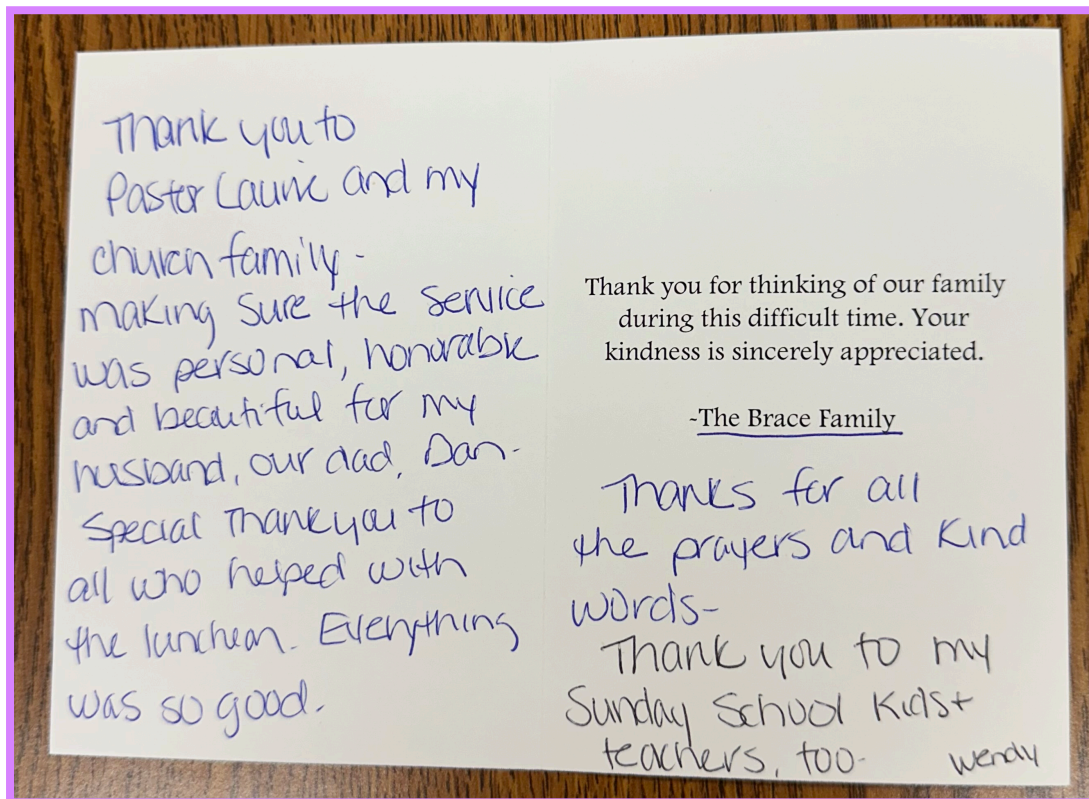 Thank you to
Pastor Laurie and my
church family -
making sure the service
was personal, honorable
and beautiful for my
husband, our dad, Dan-
Special Thank you to
all who helped with
the luncheon. Everything
was so good.
Thank you for thinking of our family
during this difficult time. Your
kindness is sincerely appreciated.
-The Brace Family
Thanks for all
the prayers and kind
words-
Thank you to my
Sunday School Kids+
teachers, too-
Wendy